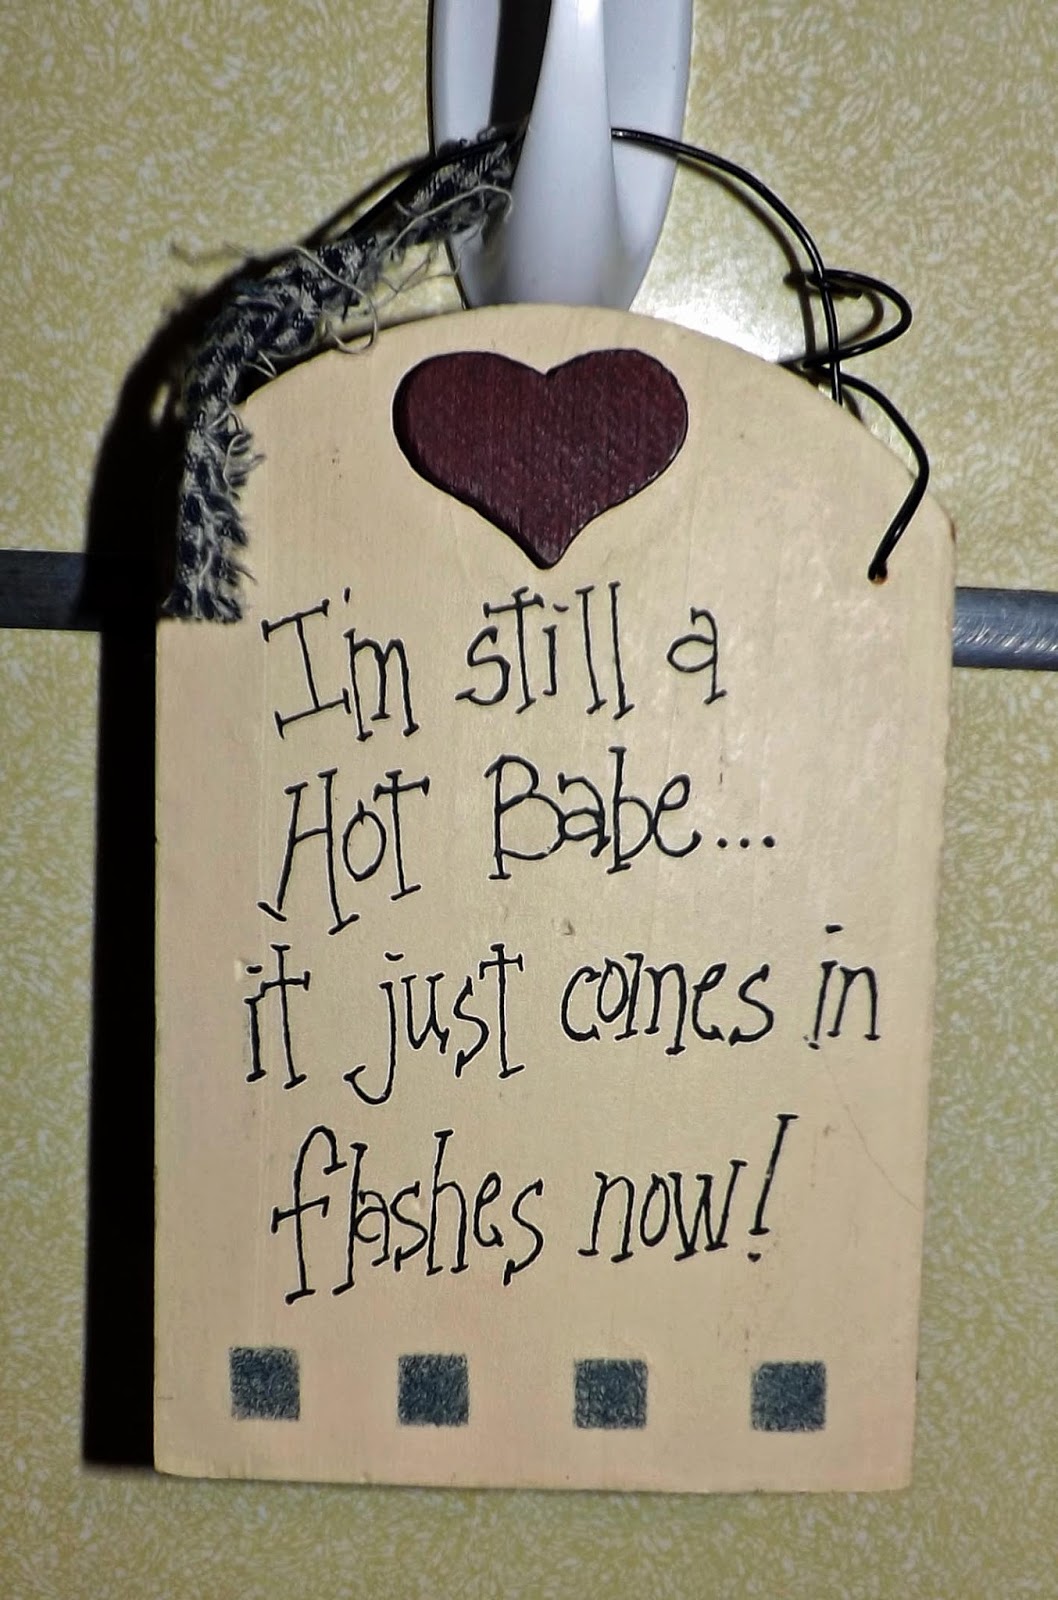 I'm still a
Hot Babe...
it just comes in
flashes now!